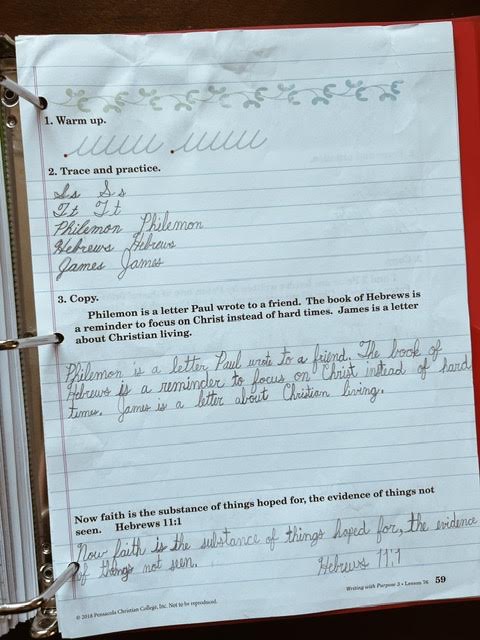 1. Warm up.
2. Trace and practice.
Ss Ss
Tt Tt
Philemon Philemon
Hebrews Hebrews
James James
3. Copy.
Philemon is a letter Paul wrote to a friend. The book of Hebrews is
a reminder to focus on Christ instead of hard times. James is a letter
about Christian living.
Philemon is a letter Paul wrote to a friend. The book of
Hebrews is a reminder to focus on Christ instead of hard
times. James is a letter about Christian living.
Now faith is the substance of things hoped for, the evidence of things not
seen. Hebrews 11:1
Now faith is the substance of things hoped for, the evidence
of things not seen. Hebrews 11:1
Writing with Purpose 3 • Lesson 76 59
© 2018 Pensacola Christian College, Inc. Not to be reproduced.